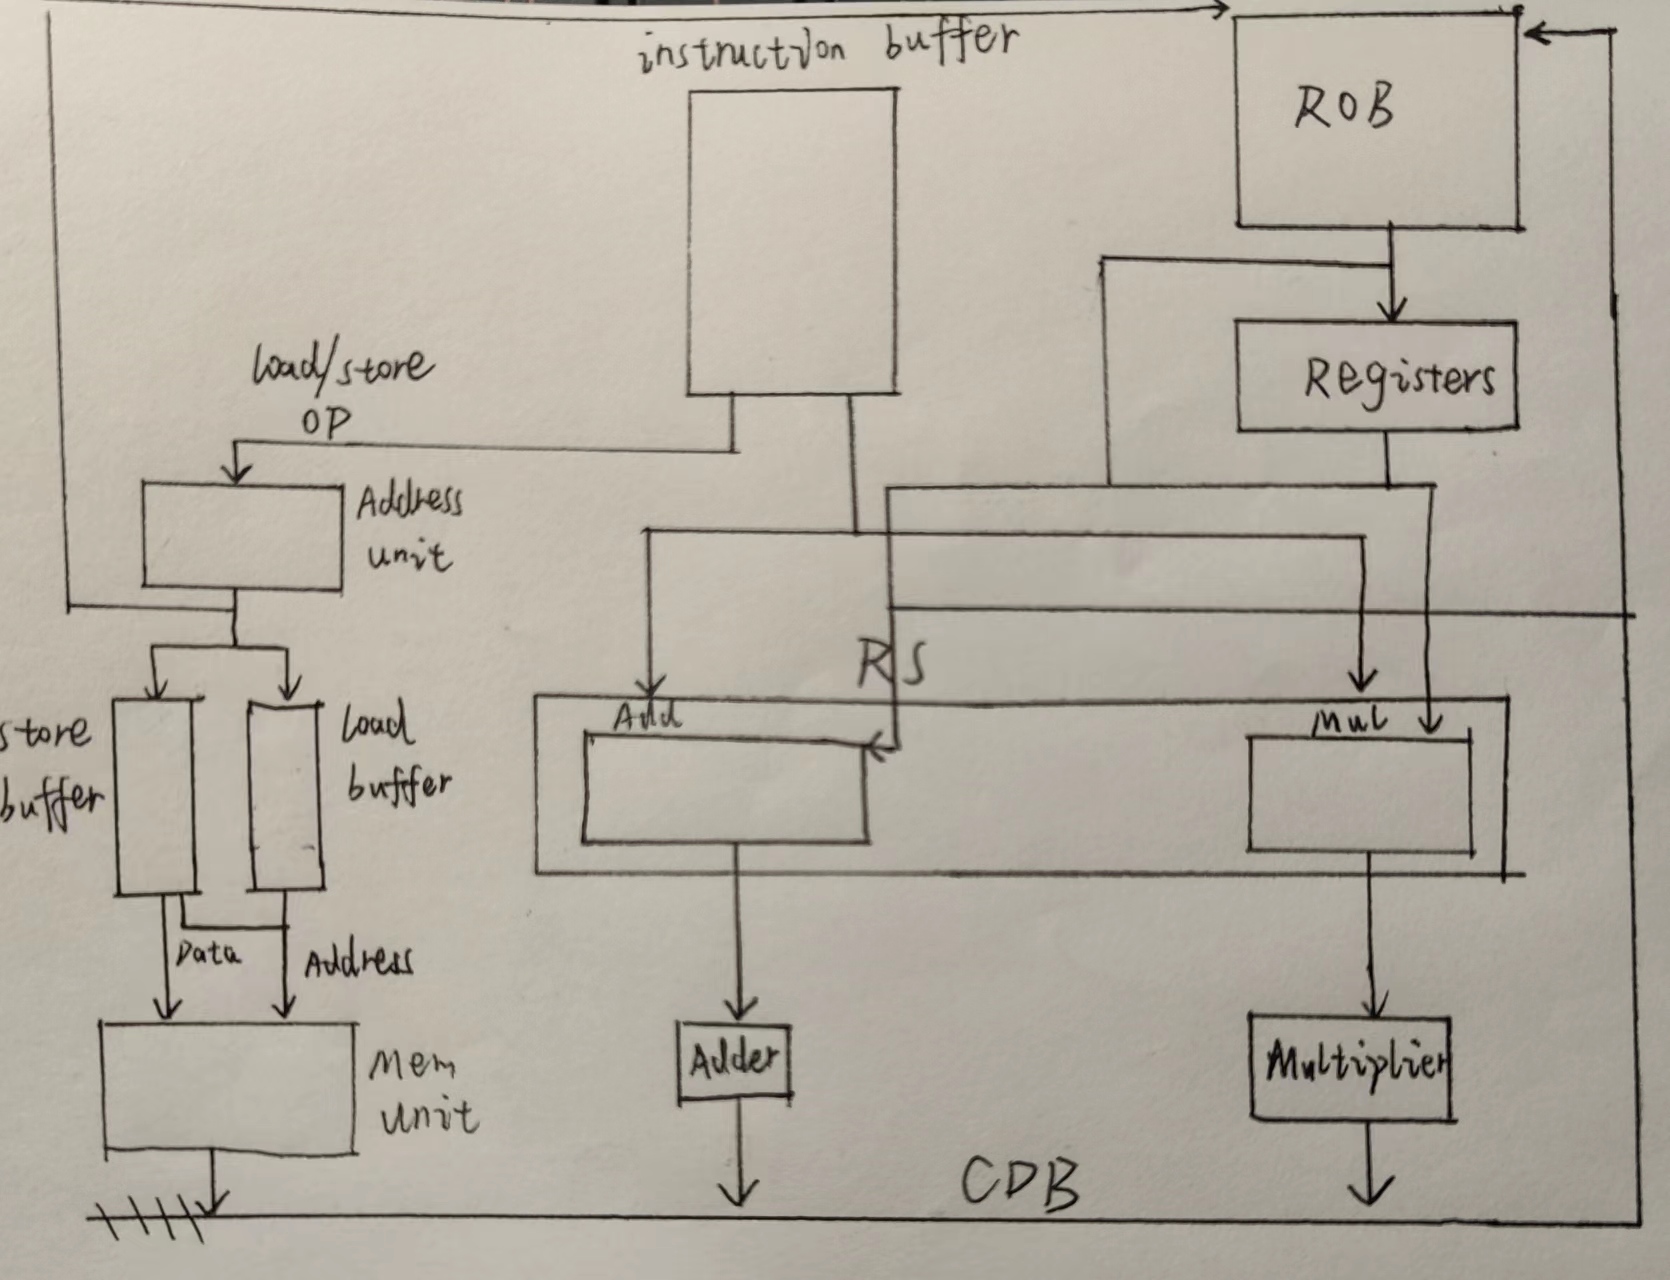 instruction buffer
ROB
Registers
load/store
OP
Address
unit
RS
Add
Mul
store
buffer
load
buffer
Data
Address
Mem
unit
Adder
Multiplier
CDB